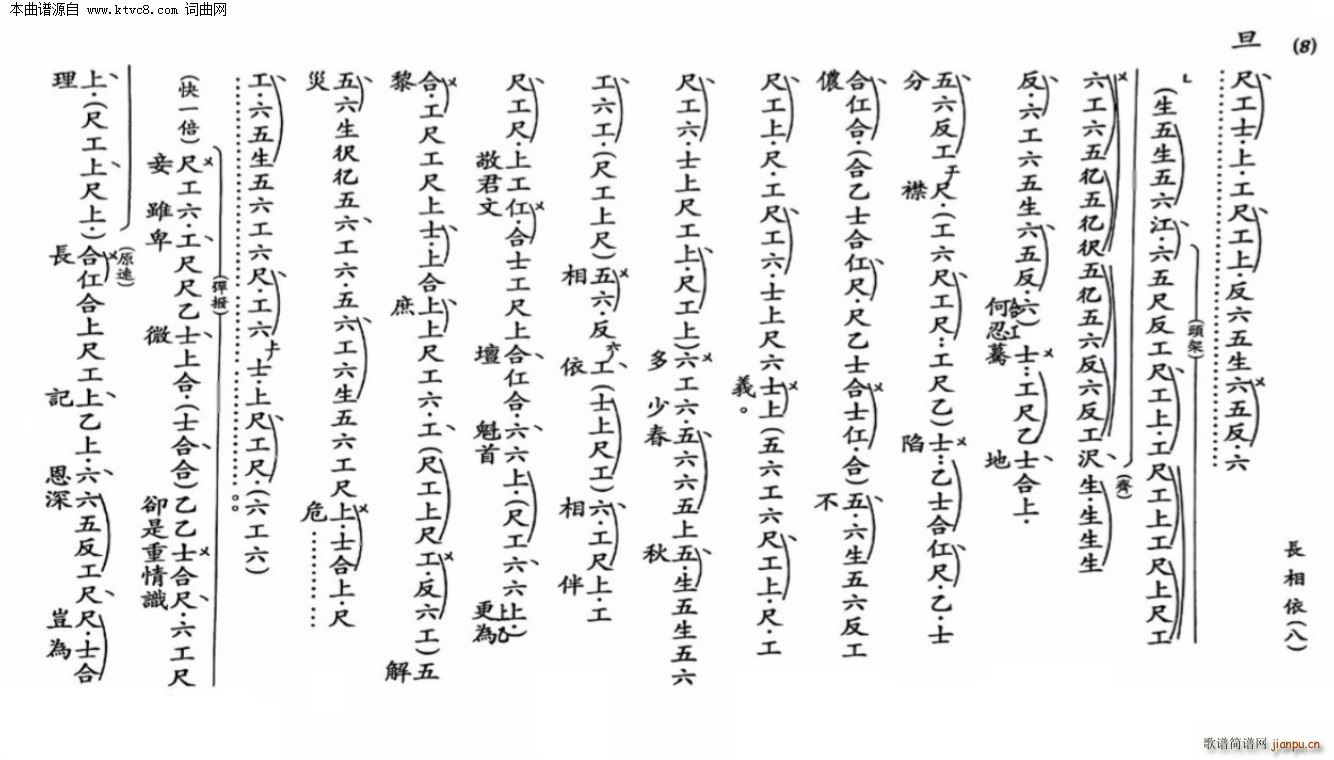 本曲谱源自 www.ktvc8.com 词曲网
(8)
長相依(八)
旦
尺工士·上·工尺工上·反六五生六五反·六
(生五生五六江·六五尺反工尺工上·工尺工上工尺上尺工
(頭架)
六工六五亿五亿伬五亿五六反六反工沢·生·生生生
(齊)
反·六工六五生六五反·六)士·工尺乙士合上·
合仜
何忍驀 地
五六反工尺·(工六尺工尺·工尺乙)士·乙士合仜尺·乙·士
分 襟 陷
合仜合·(合乙士合仜尺·尺乙士合士仜·合)五·六生五六反工
儂 不
尺工上·尺·工尺工六·士上尺六士上(五六工六尺工上尺·工
義。
尺工六·士上尺工上·尺工上)六工六·五六六五上五·生五生五六
多少春 秋
工六工·(尺工上尺)五六·反工(士上尺工)六·工尺上·工
六
相 依 相 伴
尺工尺·上工仜·合士工尺上合仜合·六六上·(尺工六六上·)
上乙
敬君文 壇 魁首 更為
合·工尺工尺上士·上合上上尺工六·工(尺工上尺工·反六工)五
黎 庶 解
五六生伬亿五六工六·五六工六生五六工尺上·士合上·尺
災 危
工·六五生五六工六尺·工六士·上尺工尺·(六工六)
(快一倍)尺工六·工尺尺乙士上合·(士合合)乙乙士合尺·六工尺
(彈撥)
妾雖卑 微 卻是重情識
上·(尺工上尺上·)合仜合上尺工上乙上·六六五反工尺尺·士合
(原速)
理 長 記 恩深 豈為
歌谱简谱网 jianpu.cn